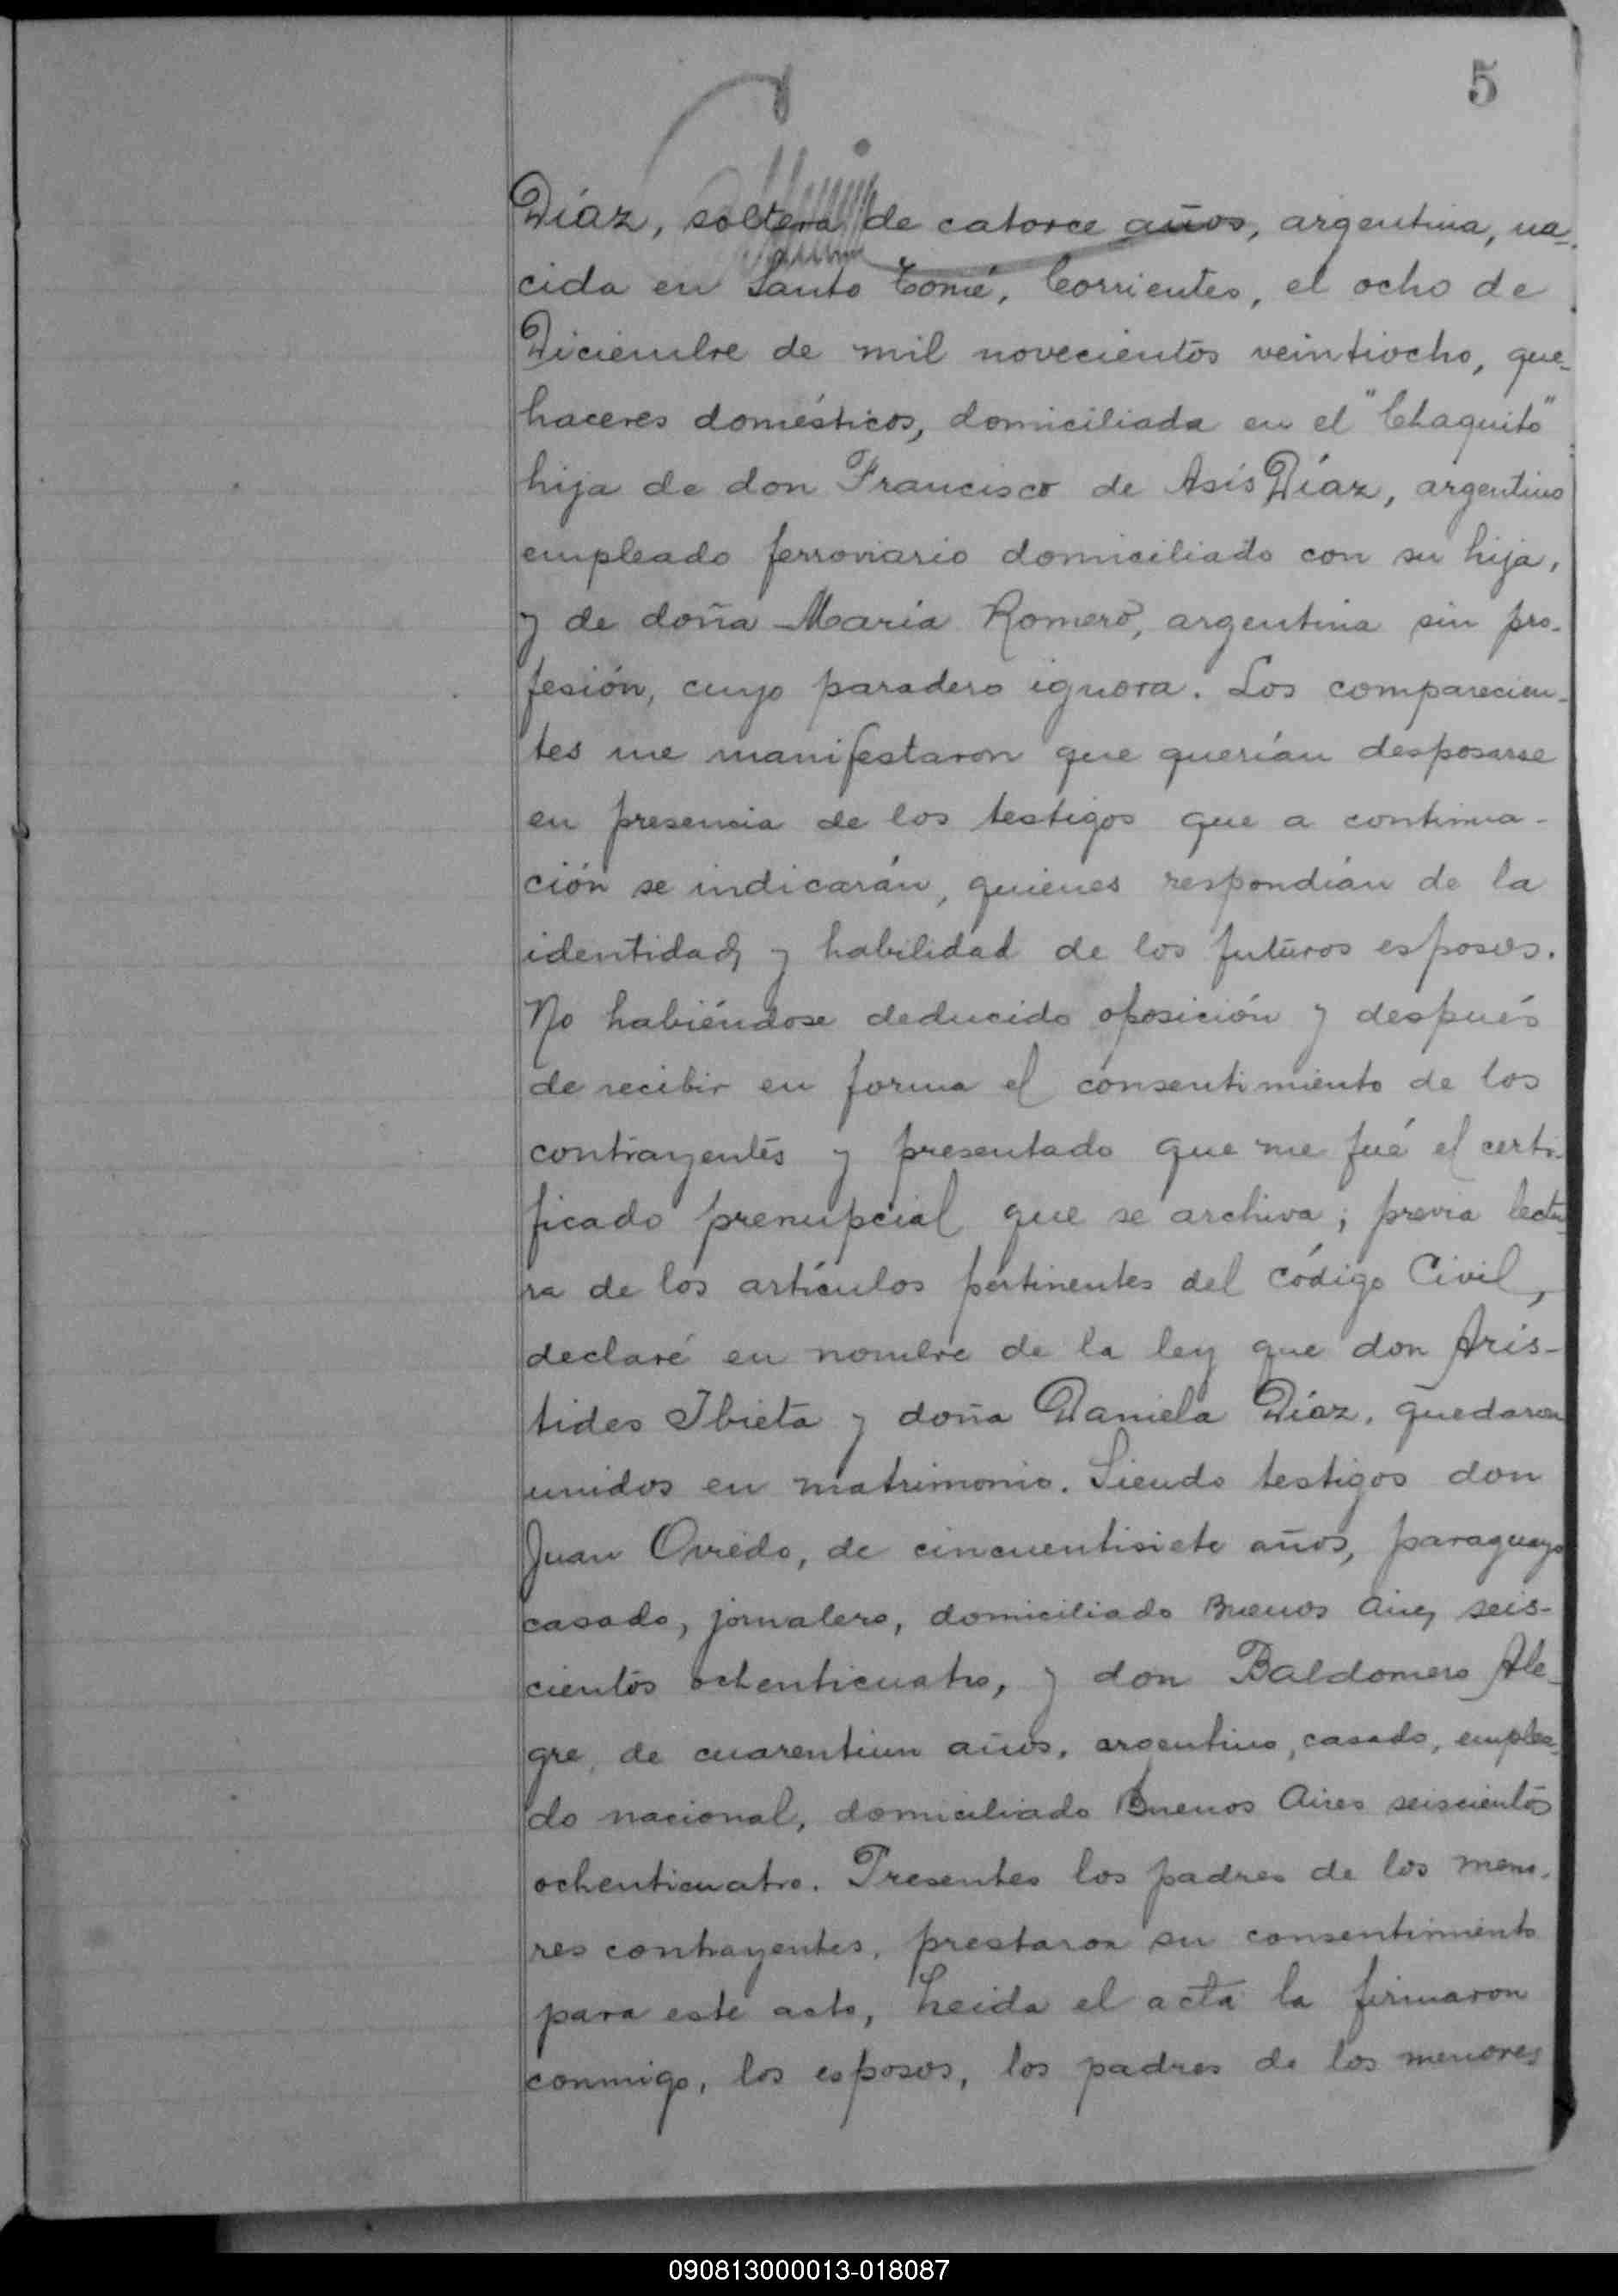 5
Díaz, soltera de catorce años, argentina, na-
cida en Santo Tomé, Corrientes, el ocho de
Diciembre de mil novecientos veintiocho, que-
haceres domésticos, domiciliada en el "Chaquito"
hija de don Francisco de Asís Díaz, argentino
empleado ferroviario domiciliado con su hija,
y de doña María Romero, argentina sin pro-
fesión, cuyo paradero ignora. Los comparecien-
tes me manifestaron que querían desposarse
en presencia de los testigos que a continua-
ción se indicarán, quienes respondían de la
identidad y habilidad de los futuros esposos.
No habiéndose deducido oposición y después
de recibir en forma el consentimiento de los
contrayentes y presentado que me fué el certi-
ficado prenupcial que se archiva; previa lectu-
ra de los artículos pertinentes del código Civil,
declaré en nombre de la ley que don Arís-
tides Ibieta y doña Daniela Díaz, quedaron
unidos en matrimonio. Siendo testigos don
Juan Oviedo, de cincuentisiete años, paraguayo
casado, jornalero, domiciliado Buenos Aires seis-
cientos ochenticuatro, y don Baldomero Ale-
gre, de cuarentiun años, argentino, casado, emplea-
do nacional, domiciliado Buenos Aires seiscientos
ochenticuatro. Presentes los padres de los meno-
res contrayentes, prestaron su consentimiento
para este acto, Leida el acta la firmaron
conmigo, los esposos, los padres de los menores
090813000013-018087